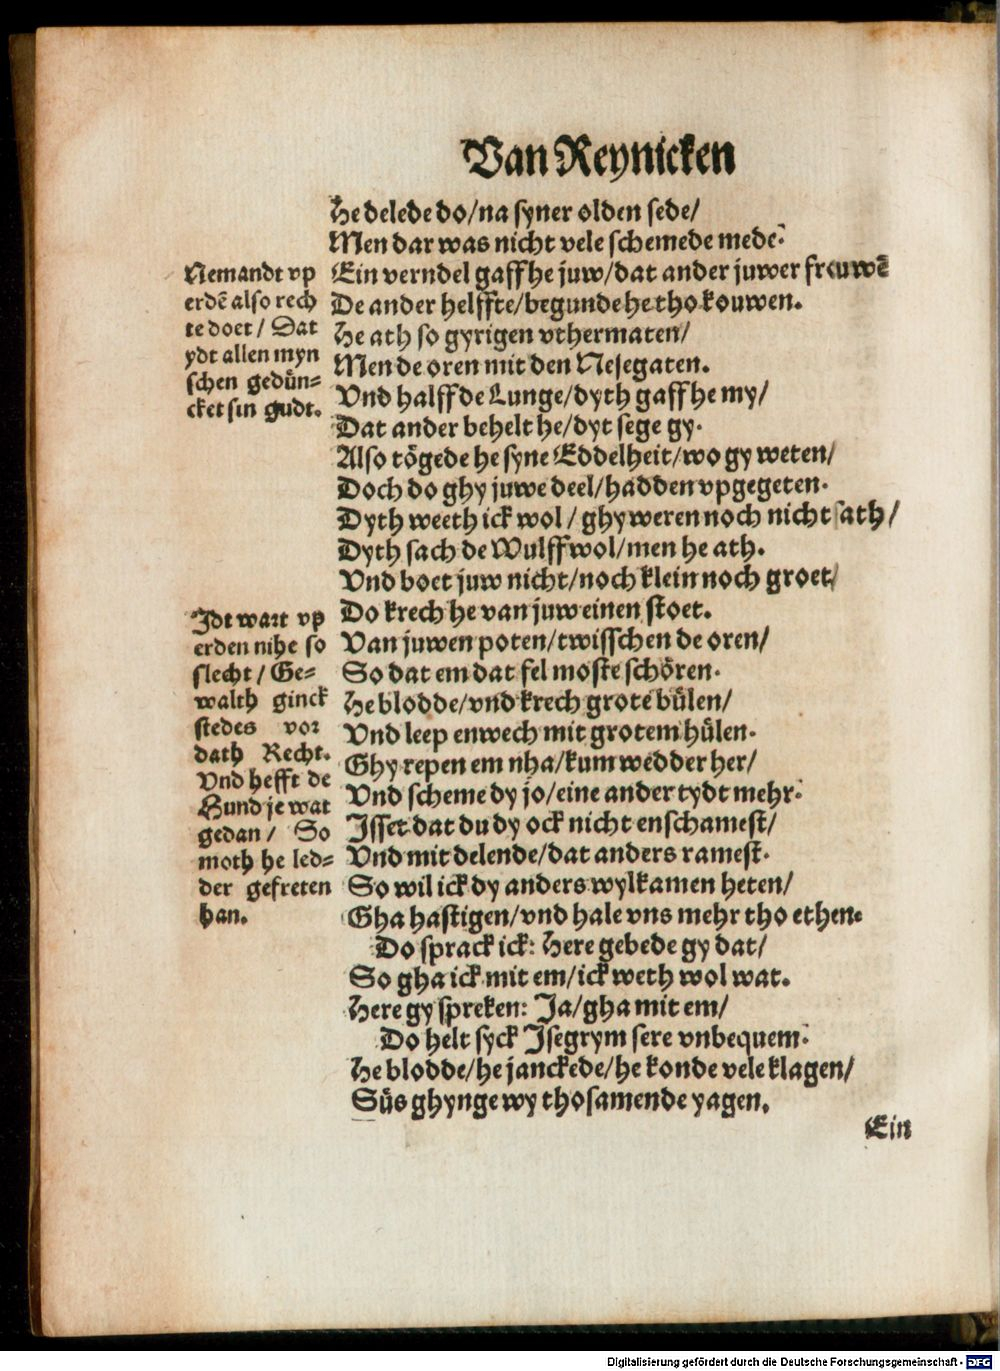 Van Reynicken
He delede do/na syner olden sede/
Men dar was nicht vele schemede mede.
Ein verndel gaff he juw/dat ander juwer frouwē
De ander helffte/begunde he tho kouwen.
He ath so gyrigen vthermaten/
Men de oren mit den Nesegaten.
Vnd halff de Lunge/dyth gaff he my/
Dat ander behelt he/dyt sege gy.
Also toͤgede he syne Eddelheit/wo gy weten/
Doch do ghy juwe deel/hadden vpgegeten.
Dyth weeth ick wol/ghy weren noch nicht sath/
Dyth sach de Wulff wol/men he ath.
Vnd boet juw nicht/noch klein noch groet/
Do krech he van juw einen stoet.
Van juwen poten/twisschen de oren/
So dat em dat fel moste schoͤren.
He blodde/vnd krech grote buͤlen/
Vnd leep enwech mit grotem huͤlen.
Ghy repen em nha/kum wedder her/
Vnd scheme dy jo/eine ander tydt mehr.
Isset dat du dy ock nicht enschamest/
Vnd mit delende/dat anders ramest.
So wil ick dy anders wylkamen heten/
Gha hastigen/vnd hale vns mehr tho ethen.
Do sprack ick: Here gebede gy dat/
So gha ick mit em/ick weth wol wat.
Here gy spreken: Ja/gha mit em/
Do helt syck Isegrym sere vnbequem.
He blodde/he janckede/he konde vele klagen/
Suͤs ghynge wy thosamende yagen.
Ein
Nemandt vp
erdē also rech
te doet/ Dat
ydt allen myn
schen geduͤn=
cket sin gudt.
Idt wart vp
erden nihe so
slecht/ Ge=
walth ginck
stedes vor
dath Recht.
Vnd hefft de
Hund je wat
gedan/ So
moth he led=
der gefreten
han.
Digitalisierung gefördert durch die Deutsche Forschungsgemeinschaft - DFG